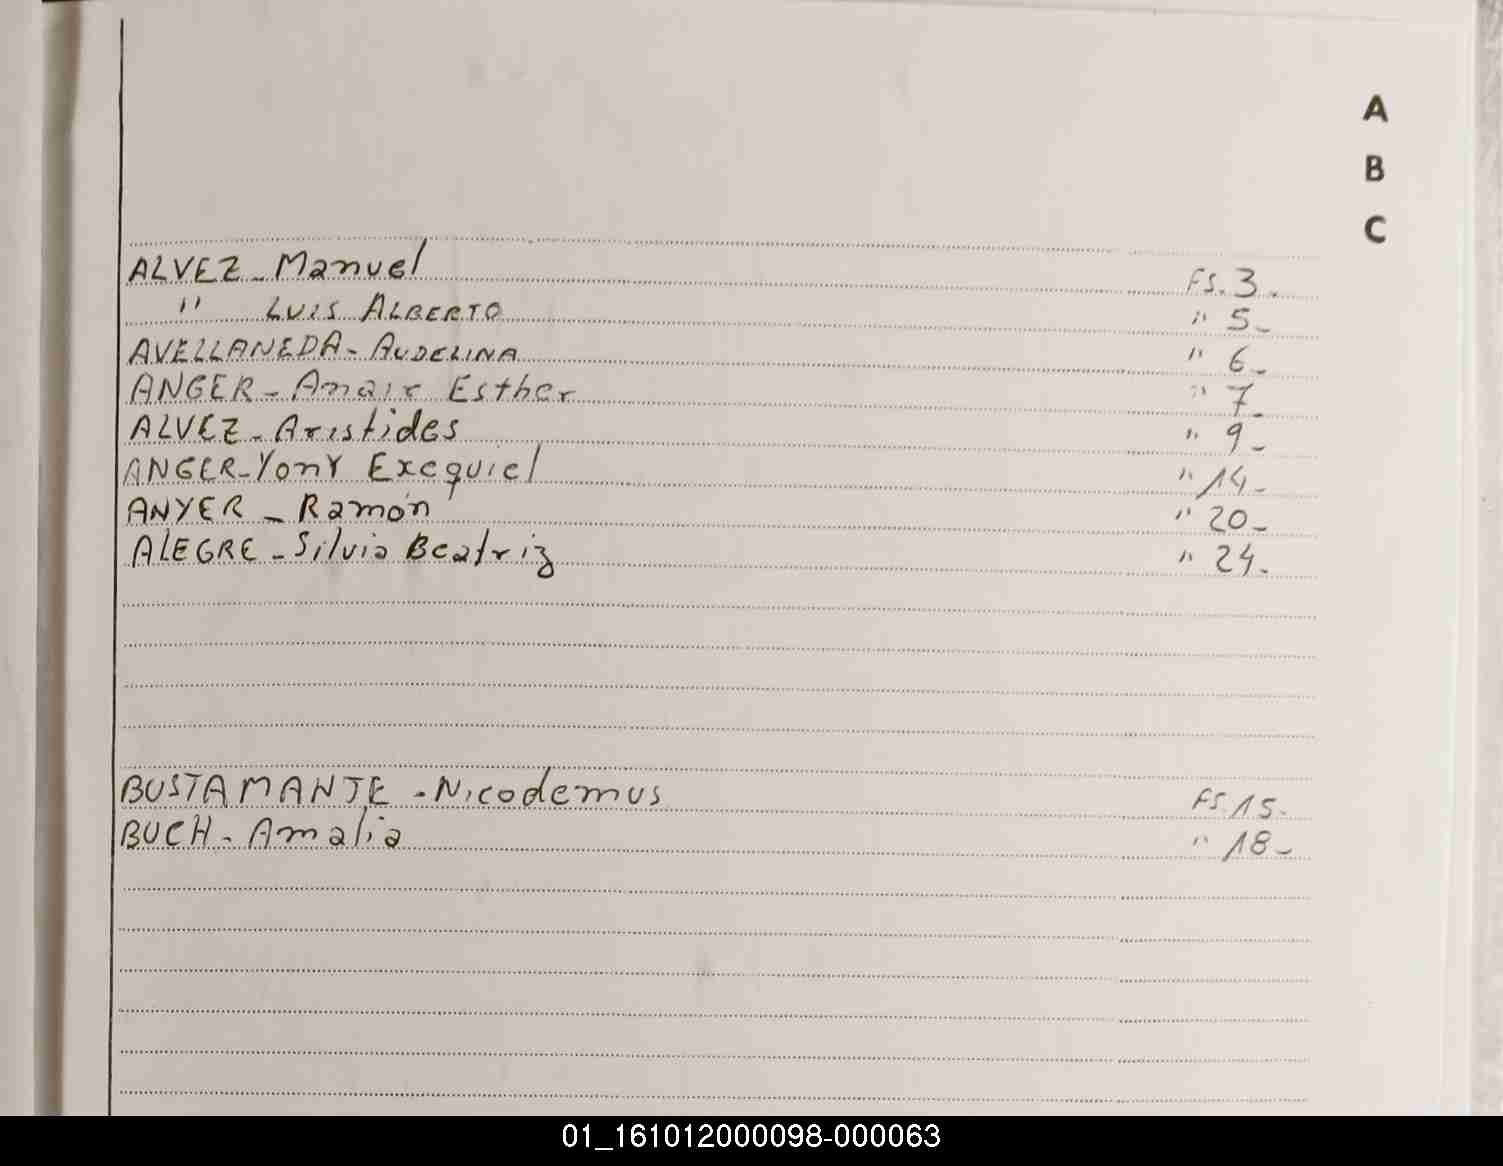 A
B
C
ALVEZ - Manuel FS. 3 -
" LUIS ALBERTO " 5 -
AVELLANEDA - AUDELINA " 6 -
ANGER - Amair Esther " 7 -
ALVEZ - Aristides " 9 -
ANGER - YonY Exequiel " 14 -
ANYER - Ramón " 20 -
ALEGRE - Silvia Beatriz " 24 -
BUSTAMANTE - Nicodemus FS. 15 -
BUCH - Amalia " 18 -
01_161012000098-000063